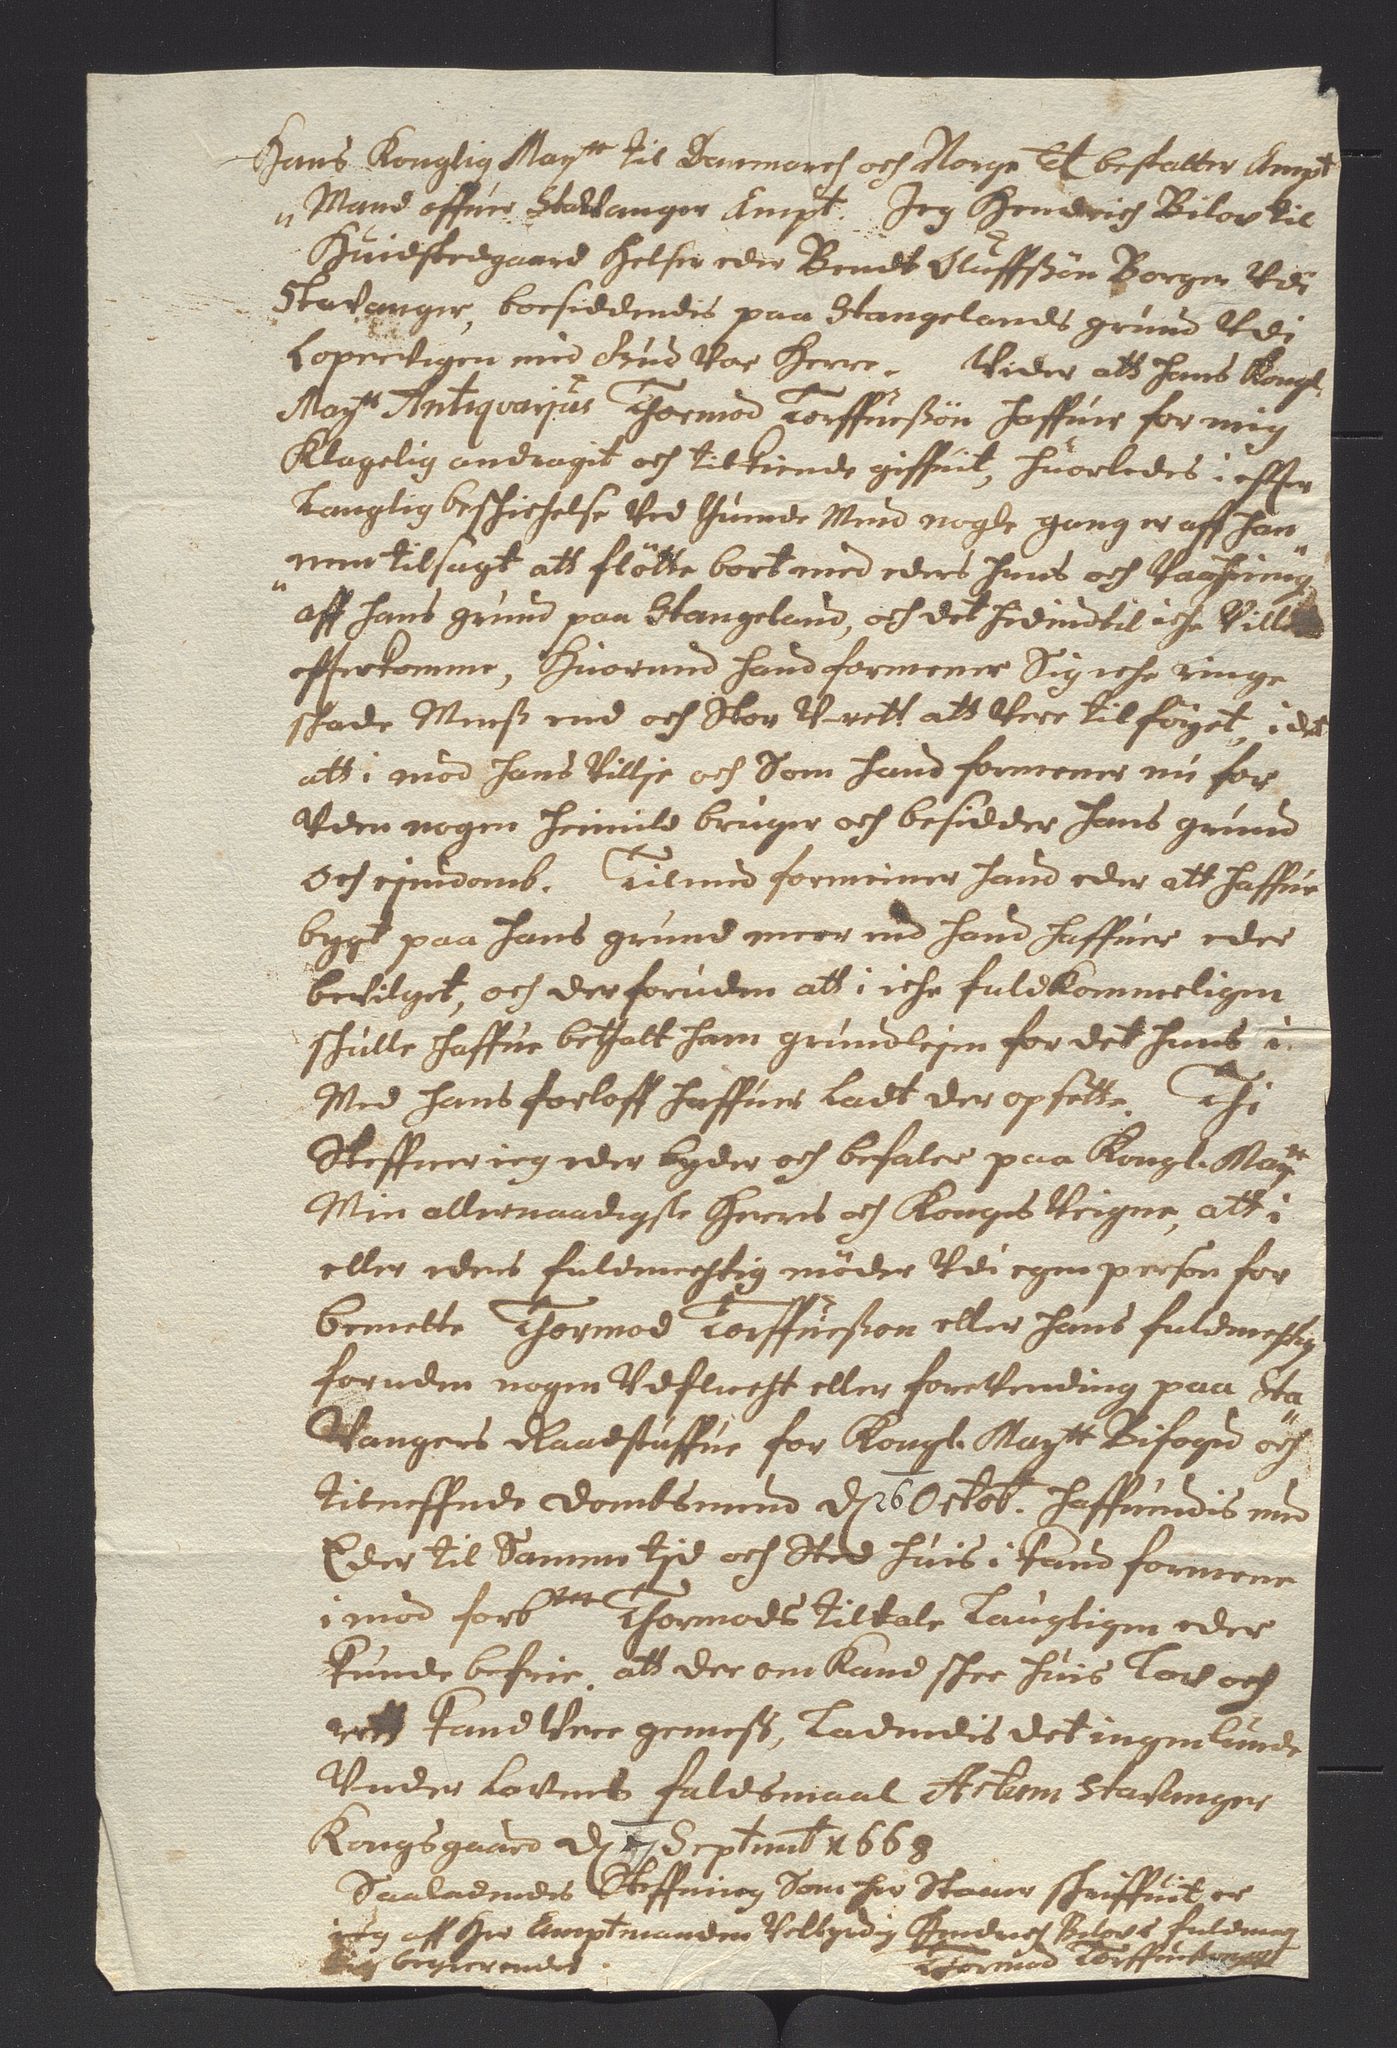 Hans Konglig Maytt til Danmarch och Norge &c bestalter Ampt
"Mand offuer Stavanger Ampt. Jeg Hendrich Bilov til
Huidstedgaard Helser eder Bendt Oluffssön Borger Vdi
Stavanger, boesiddendis paa Stangelands grund Vdi
Lopervigen med Gud Vor Herre. Vider att hans Kongl.
Maytts Antiquarjus Thormod Torffuessön haffuer for mig
Klagelig andragit och tilkiende giffuit, huorledes i effter
Lauglig beschichelse Ved thuende Mend nogle gang er aff han"
"nem tilsagt att flötte bort med eders huus och Vaaning
aff hans grund paa Stangeland, och det hidindtil iche Ville
effterkomme, Huormed hand formener Sig iche ringe
schade Menss end och Stor V-rett att Vere tilföiget, i det
att i mod hans Villje och Som hand formener nu for
Vden nogen Heimild bruger och besidder hans grund
Och eiendomb. Tilmed formeiner hand eder att haffue
bygt paa hans grund meer end hand haffuer eder
bevilget, och der foruden att i iche fuldkommeligen
schulle haffue bethalt ham grundlejen for det huus i
Med hans forloff haffuer Ladt der opsette. Thi
Steffner ieg eder byder och befaler paa Kongl. Maytt
Min allernaadigste Herris och Konges Veigne, att i
eller eders fuldmechtig möder Vdi egen person for
bemelte Thormod Torffuesson eller hans fuldmechtig
foruden nogen Vdflucht eller forevending paa Sta"
Vangers Raadstuffue for Kongl. Maytt Bifogd och
tilneffnde Dombsmend d 26 Octob. haffuendis med
Eder til Samme tid och Sted huis i kand formene
i mod forbte Thormods tiltale Laugligen eder
kunde befrie. att der om kand schee huis Lov och
rett kand Vere gemess, Ladendis det ingenlunde
Vnder Lovens faldsmaal Actum Stavanger
Kongsgaard d Septembr 1668
Saaledendis Steffning Som her Staaer schriffuit er
ieg aff Her Amptmanden Velbyrdig Hendrich Bilovs fuldmeg
tig begierendis. Thormod Torffuesson